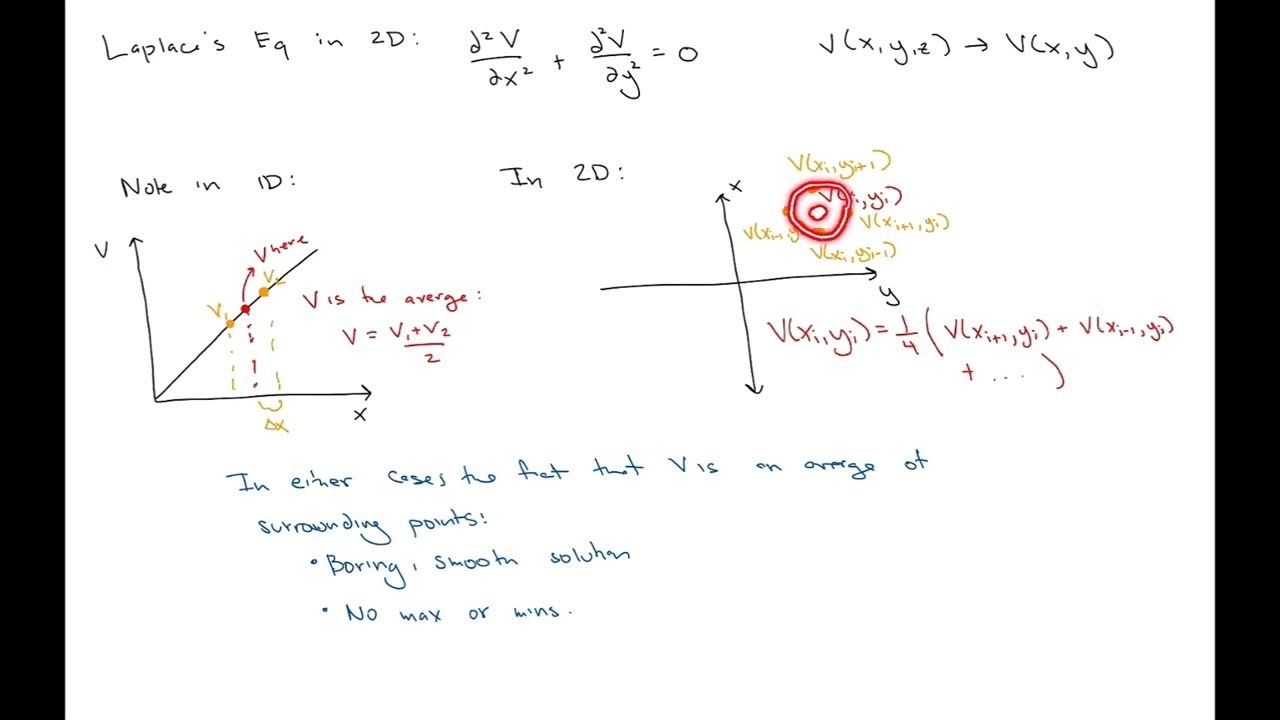 Laplace's Eq in 2D: ∂²V/∂x² + ∂²V/∂y² = 0
V(x,y,z) → V(x,y)
Note in 1D:
In 2D:
V
V₁
V here
V₂
V is the averge:
V = (V₁+V₂)/2
x
Δx
x
V(xᵢ,yᵢ₊₁)
V(xᵢ,yᵢ)
V(xᵢ₊₁,yᵢ)
V(xᵢ₋₁,y
V(xᵢ,yᵢ₋₁)
y
V(xᵢ,yᵢ) = 1/4 (V(xᵢ₊₁,yᵢ) + V(xᵢ₋₁,yᵢ)
+ ... )
In either cases the fact that V is an averge of
surrounding points:
• Boring, smooth solution
• No max or mins.